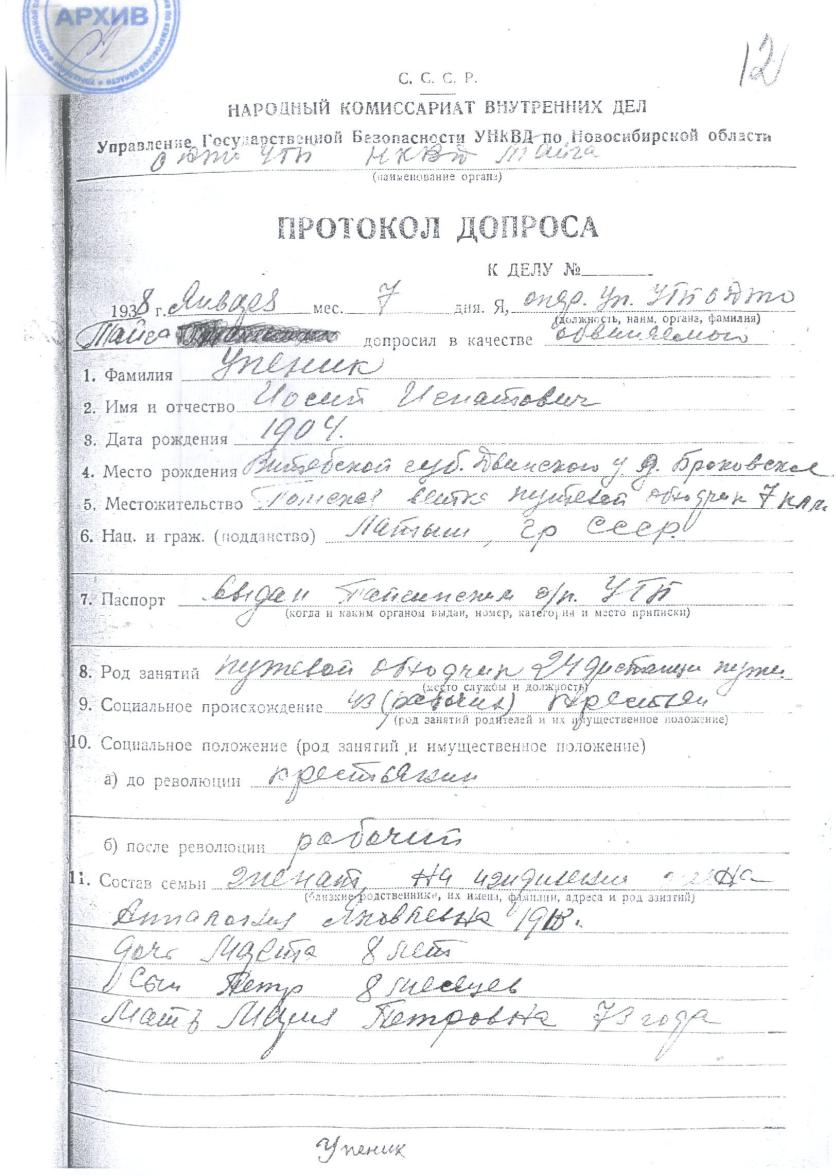 АРХИВ
12
С. С. С. Р.
НАРОДНЫЙ КОМИССАРИАТ ВНУТРЕННИХ ДЕЛ
Управление Государственной Безопасности УНКВД по Новосибирской области
УГБ НКВД Тайга
(наименование органа)
ПРОТОКОЛ ДОПРОСА
К ДЕЛУ №
1938 г. Января мес. 7 дня. Я, опер. уп. УГБ ОДТО
(должность, наим. органа, фамилия)
Тайга допросил в качестве обвиняемого
1. Фамилия Упеник
2. Имя и отчество Иосип Игнатович
3. Дата рождения 1904.
4. Место рождения Витебской губ. Двинского у. д.
5. Местожительство Томская ветка путевой обходчик 7 клм.
6. Нац. и граж. (подданство) Латыш, гр СССР
7. Паспорт выдан Тайгинским о/п. УГБ
(когда и каким органом выдан, номер, категория и место приписки)
8. Род занятий путевой обходчик 24 дистанции пути.
(место службы и должность)
9. Социальное происхождение из (рабочих) крестьян
(род занятий родителей и их имущественное положение)
10. Социальное положение (род занятий и имущественное положение)
а) до революции крестьянин
б) после революции рабочий
11. Состав семьи женат, на иждивении жена
(близкие родственники, их имена, фамилии, адреса и род занятий)
Яковлевна 1918 г.
дочь Марта 8 лет
Сын Петр 8 месяцев
Мать Мария Петровна 73 года
Упеник